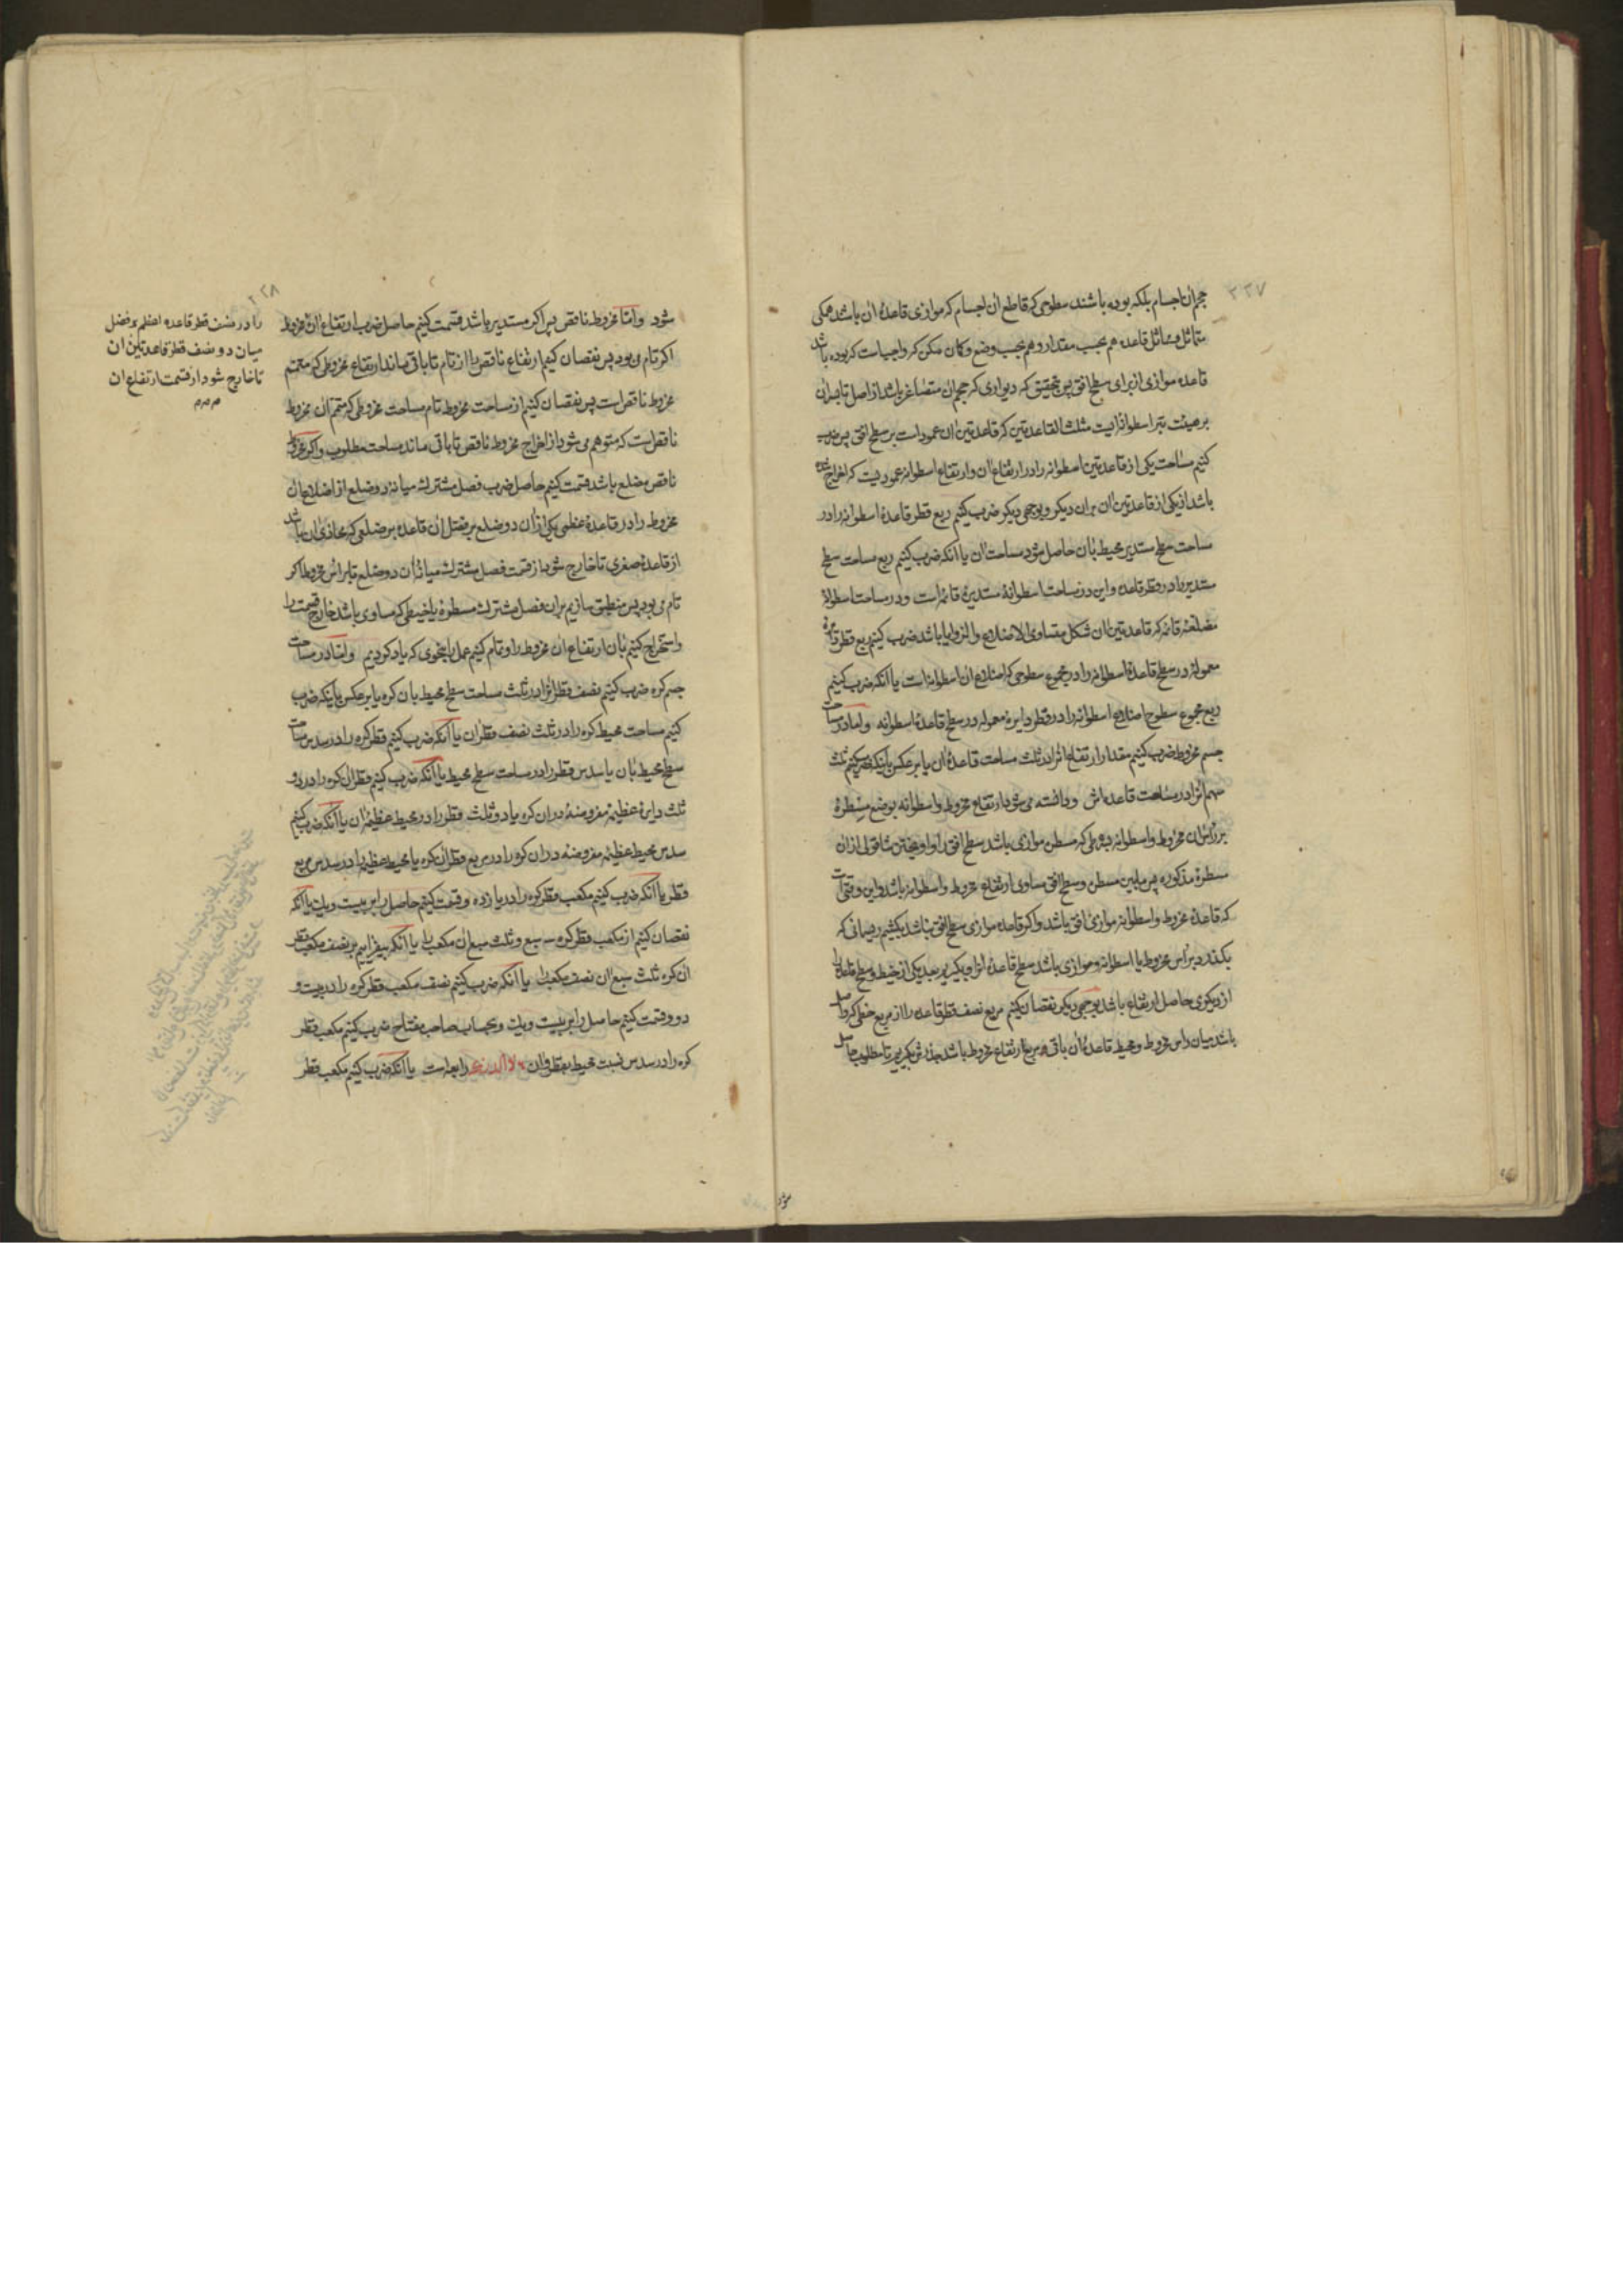 ۲۲۷
حجم آن اجسام بلکه بوده باشند سطوحی که قاطع آن اجسام که موازی قاعدهٔ آن باشد همکی
متماثل و مماثل قاعده هم بحسب مقدار و هم بحسب وضع وکان ممکن که واجبست که بوده باشد
قاعده موازی از برای سطح افق پس بتحقیق که دیواری که حجم آن متصاغر باشد از اصل تا بسر آن
بر هیئت تبر اسطوانه‌ایست مثلث القاعدتین که قاعدتین آن عمود است بر سطح افق پس ضرب
کنیم مساحت یکی از قاعدتین اسطوانه را در ارتفاع آن وارتفاع اسطوانه عمودیست که اخراج شده
باشد از یکی از قاعدتین آن بران دیکر وبوجهی دیکر ضرب کنیم ربع قطر قاعدهٔ اسطوانه را در
مساحت سطح مستدیر محیط بان حاصل شود مساحت آن یا انکه ضرب کنیم ربع مساحت سطح
مستدیر را در قطر قاعده واین در مساحت اسطوانهٔ مستدیرهٔ قائمه است ودر مساحت اسطوانهٔ
مضلعهٔ قائمه که قاعدتین آن شکل متساوی الاضلاع والزوایا باشد ضرب کنیم ربع قطر دایرهٔ
معموله در سطح قاعدهٔ اسطوانه را در مجموع سطوحی که اضلاع آن اسطوانه است یا انکه ضرب کنیم
ربع مجموع سطوح اضلاع اسطوانه را در قطر دایرهٔ معموله در سطح قاعدهٔ اسطوانه واما در مساحت
جسم مخروط ضرب کنیم مقدار ارتفاع انرا در ثلث مساحت قاعدهٔ آن یا بر عکس باینکه ضرب کنیم ثلث
سهم انرا در مساحت قاعده‌اش ودانسته می شود ارتفاع مخروط واسطوانه بوضع مسطرهٔ
بر رأس آن مخروط واسطوانه بشرطی که مسطره موازی باشد سطح افق را واویختن شاقولی ازان
مسطرهٔ مذکوره پس مابین مسطره وسطح افق مساوی ارتفاع مخروط واسطوانه باشد واین وقتیست
که قاعدهٔ مخروط واسطوانه موازی افق باشد واکر قاعده موازی سطح افق نباشد بکشیم ریسمانی که
بکذرد برأس مخروط یا اسطوانه وموازی باشد سطح قاعدهٔ انرا وبکیریم بعد یکی از خیط وسطح قاعده را
از دیکری حاصل ارتفاع باشد بوجهی دیکر نقصان کنیم مربع نصف قطر قاعده را از مربع خطی که واصل
باشد میان رأس مخروط ومحیط قاعدهٔ آن باقی مربع ارتفاع مخروط باشد جذرش بکیریم تا مطلوب حاصل
شود
۲۲۸
شود واما مخروط ناقص پس اکر مستدیر باشد قسمت کنیم حاصل ضرب ارتفاع آن مخروط
اکر تام می بود پس نقصان کنیم ارتفاع ناقص را از تام تا باقی ماند ارتفاع مخروطی که متمم
مخروط ناقص است پس نقصان کنیم از مساحت مخروط تام مساحت مخروطی که متمم آن مخروط
ناقص است که متوهم می شود از اخراج مخروط ناقص تا باقی ماند مساحت مطلوب واکر مخروط
ناقص مضلع باشد قسمت کنیم حاصل ضرب فصل مشترک میانه دو ضلع از اضلاع آن
مخروط را در قاعدهٔ عظمی یکی از آن دو ضلع بر فضل آن قاعده بر ضلعی که محاذی آن باشد
از قاعدهٔ صغری تا خارج شود از قسمت فصل مشترک میانهٔ آن دو ضلع تا برأس مخروط اکر
تام می بود پس منطبق سازیم بران فصل مشترک مسطرهٔ یا خیطی که مساوی باشد خارج قسمت را
واستخراج کنیم بان ارتفاع آن مخروط را وتمام کنیم عمل را بنحوی که یاد کردیم واما در مساحت
جسم کره ضرب کنیم نصف قطر انرا در ثلث مساحت سطح محیط بان کره یا بر عکس باینکه ضرب
کنیم مساحت محیط کره را در ثلث نصف قطران یا انکه ضرب کنیم قطر کره را در سدس مساحت
سطح محیط بان یا سدس قطر را در مساحت سطح محیط یا انکه ضرب کنیم قطر آن کره را در دو
ثلث دایرهٔ عظیمهٔ مفروضهٔ دران کره یا دو ثلث قطر را در محیط عظیمهٔ آن یا انکه ضرب کنیم
سدس محیط عظیمه مفروضه دران کره را در مربع قطر آن کره یا محیط عظیمه را در سدس مربع
قطر یا انکه ضرب کنیم مکعب قطر کره را در یازده وقسمت کنیم حاصل را بر بیست ویک یا انکه
نقصان کنیم از مکعب قطر کره سه سبع وثلث سبع آن مکعب را یا انکه بیفزاییم بر نصف مکعب قطر
آن کره ثلث سبع آن نصف مکعب را یا انکه ضرب کنیم نصف مکعب قطر کره را در بیست و
دو وقسمت کنیم حاصل را بر بیست ویک وبحساب صاحب مفتاح ضرب کنیم مکعب قطر
کره را در سدس نسبت محیط بقطر وان رابعه است یا انکه ضرب کنیم مکعب قطر
را در نصف قطر قاعده اعظم بر فضل
میان دو نصف قطر قاعدتین ان
تا خارج شود از قسمت ارتفاع ان